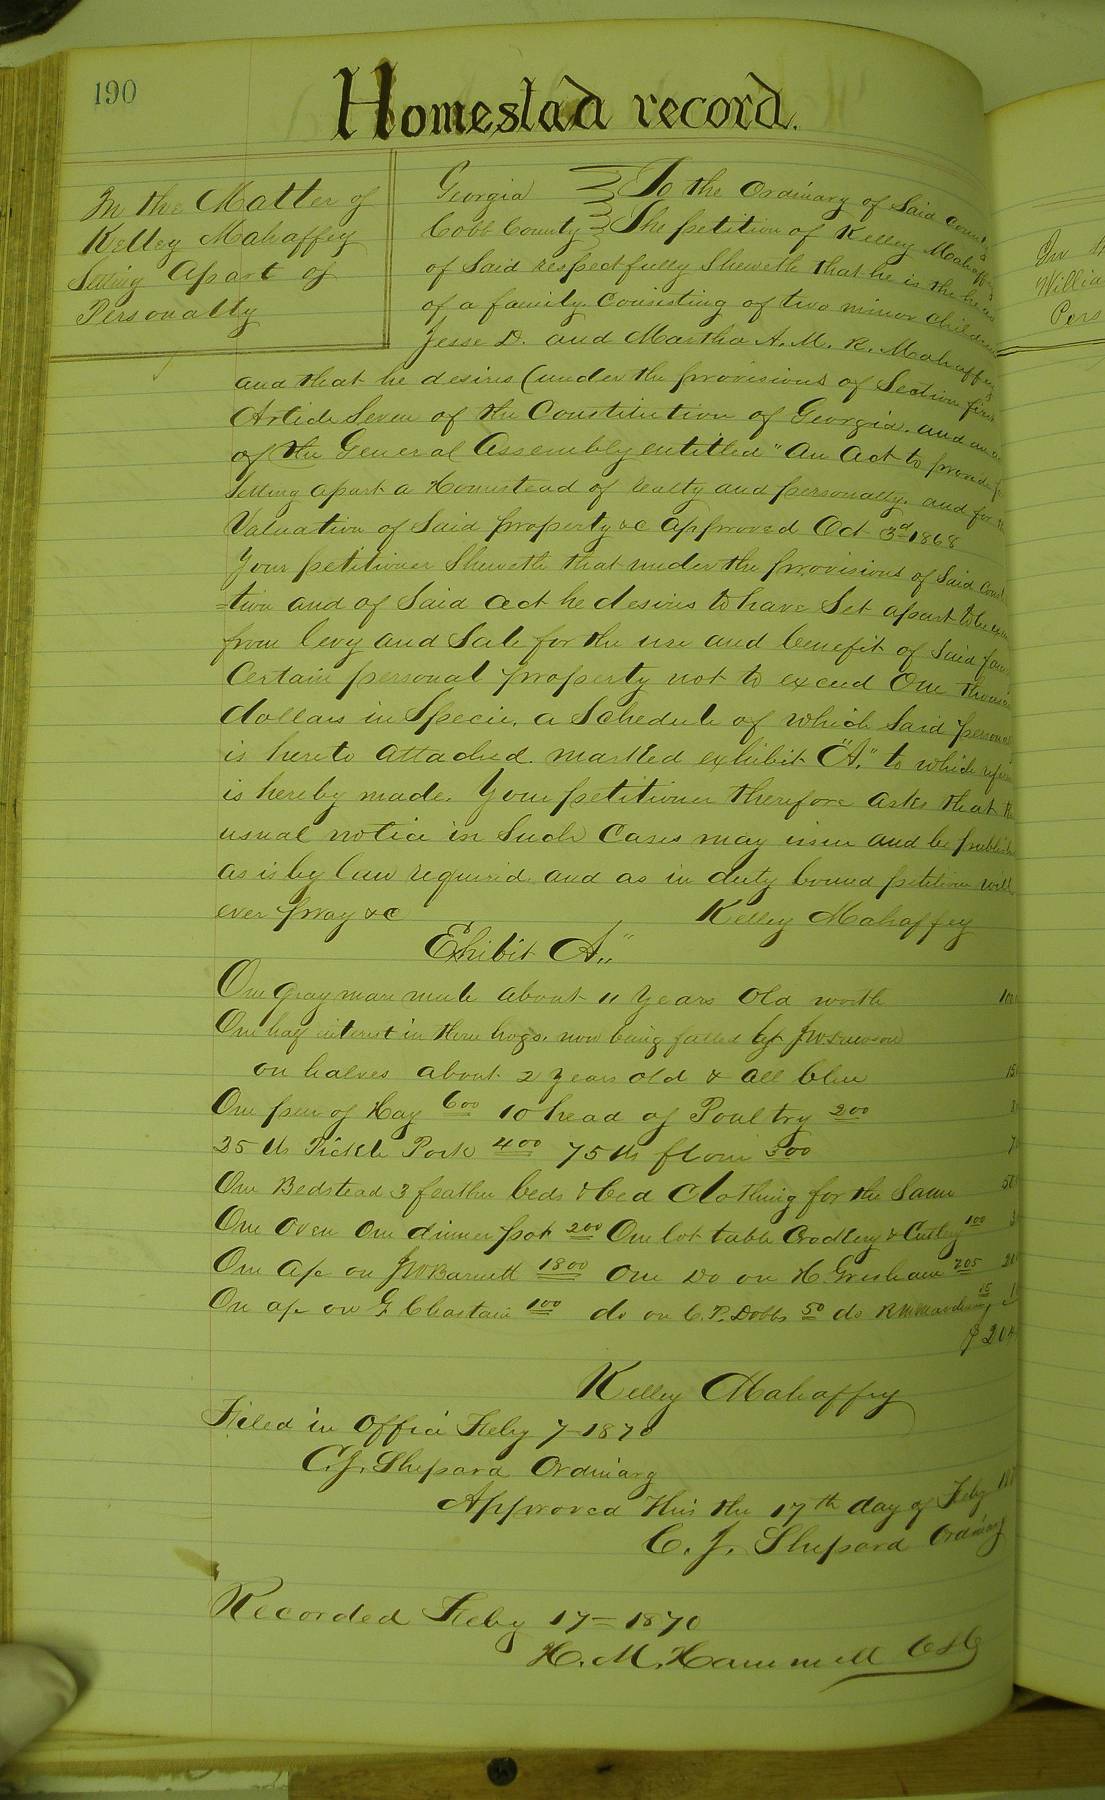 190
Homestad record.
In the Matter of
Kelley Mahaffey
Setting Apart of
Personalty
Georgia } To the Ordinary of Said County
Cobb County } The petition of Kelley Mahaffey
of Said respectfully Sheweth that he is the head
of a family. Consisting of two minor children
Jesse D. and Martha A. M. R. Mahaffey
and that he desires (under the provisions of Section first
Article Seven of the Constitution of Georgia. and an
of the General Assembly entitled "An Act to provide for
Setting apart a Homestead of realty and personalty. and for the
Valuation of Said property &c approved Oct 3d 1868
Your petitioner Sheweth that under the provisions of Said Const
=tion and of Said act he desires to have Set apart to be
from levy and Sale for the use and benefit of Said fam
Certain personal property not to exceed One thousand
dollars in Specie, a Schedule of which Said personal
is hereto attached. marked exhibit "A." to which refer
is hereby made. Your petitioner therefore asks that the
usual notice in Such Cases may issue and be publish
as is by law required. and as in duty bound petition will
ever pray &c Kelley Mahaffey
Ehibit "A"
One gray mare mule about 11 Years Old worth 100
One half interest in three hogs. now being fatted by
on halves about 2 years old & all blue 15
One pen of Hay 6 00 10 head of Poultry 2 00
25 lbs Pickle Pork 4 00 75 lbs flour 3 00 7
One Bedstead 3 feather beds & bed Clothing for the Same 50
One oven One dinner pot 2 00 One lot table Crodlery & Cutlery 1 00 3
One a/c on J W Barnett 18 00 One Do on H. Gresham 2 05 20
On a/c on G. Chastain 1 00 do on C. P. Dobbs 50 do R M 15 1
$ 204
Kelley Mahaffey
Filed in Office Feby 7 1870
C. J. Shepard Ordinary
Approved this the 17th day of Feby 18
C. J. Shepard Ordinary
Recorded Feby 17 = 1870
H. M. Hammett CSC
In
Willia
Pers